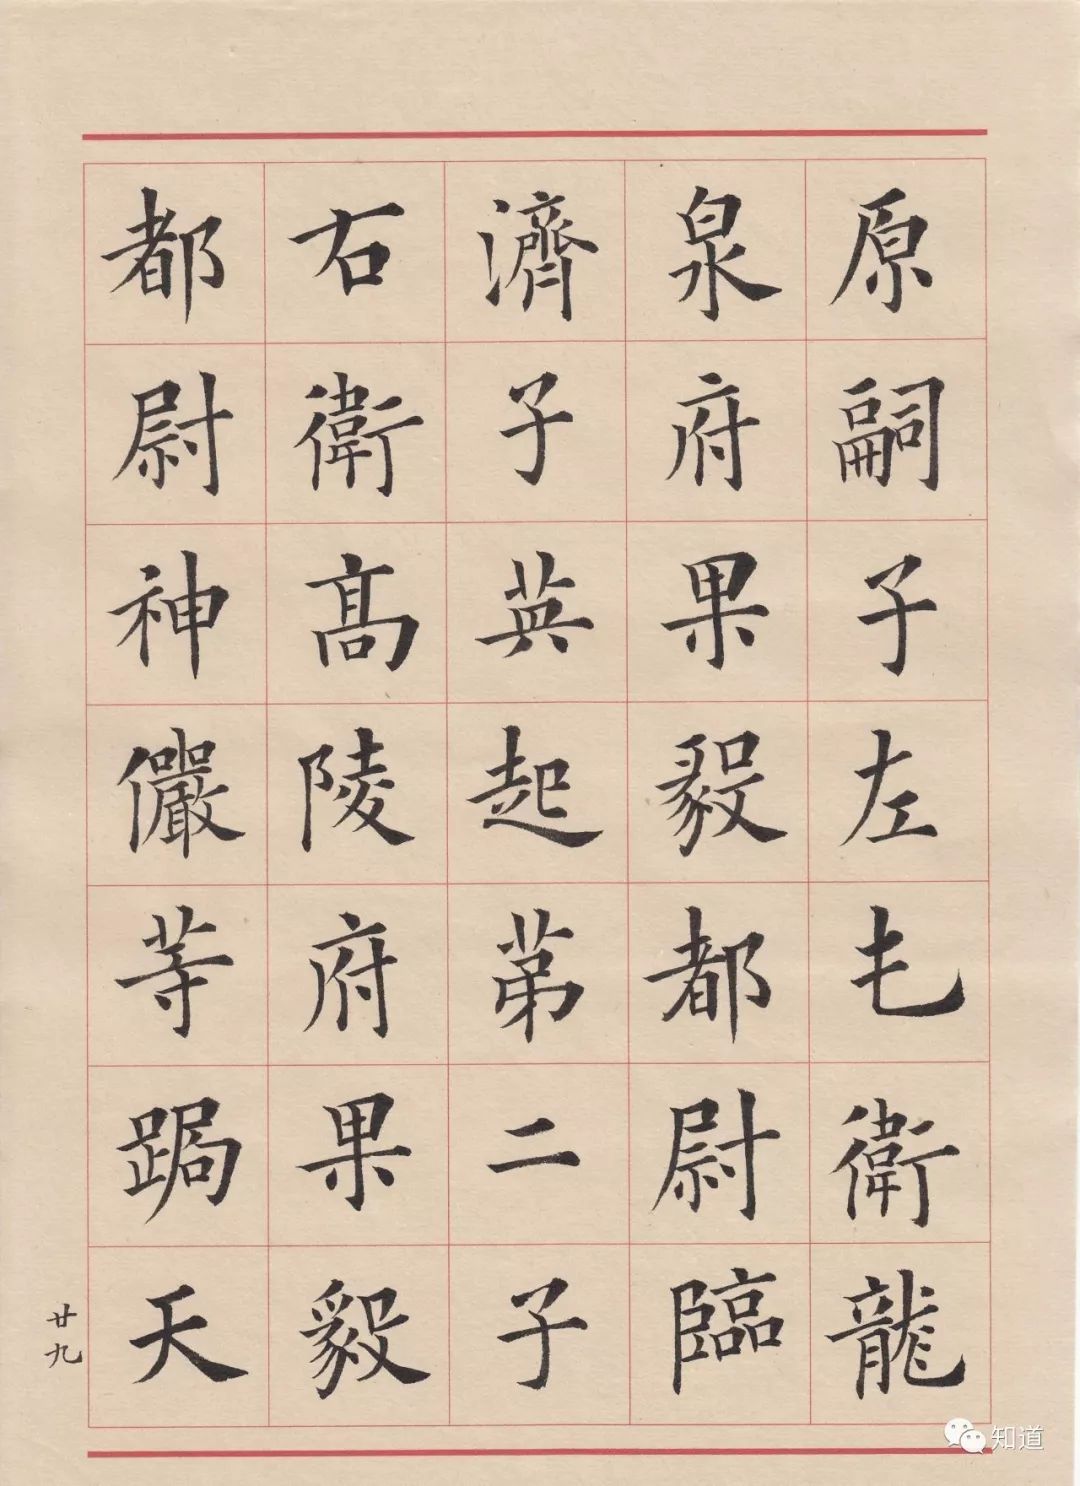 原嗣子左毛衛龍
泉府果毅都尉臨
濟子英起第二子
右衛高陵府果毅
都尉神儼等跼天
廿九
知道